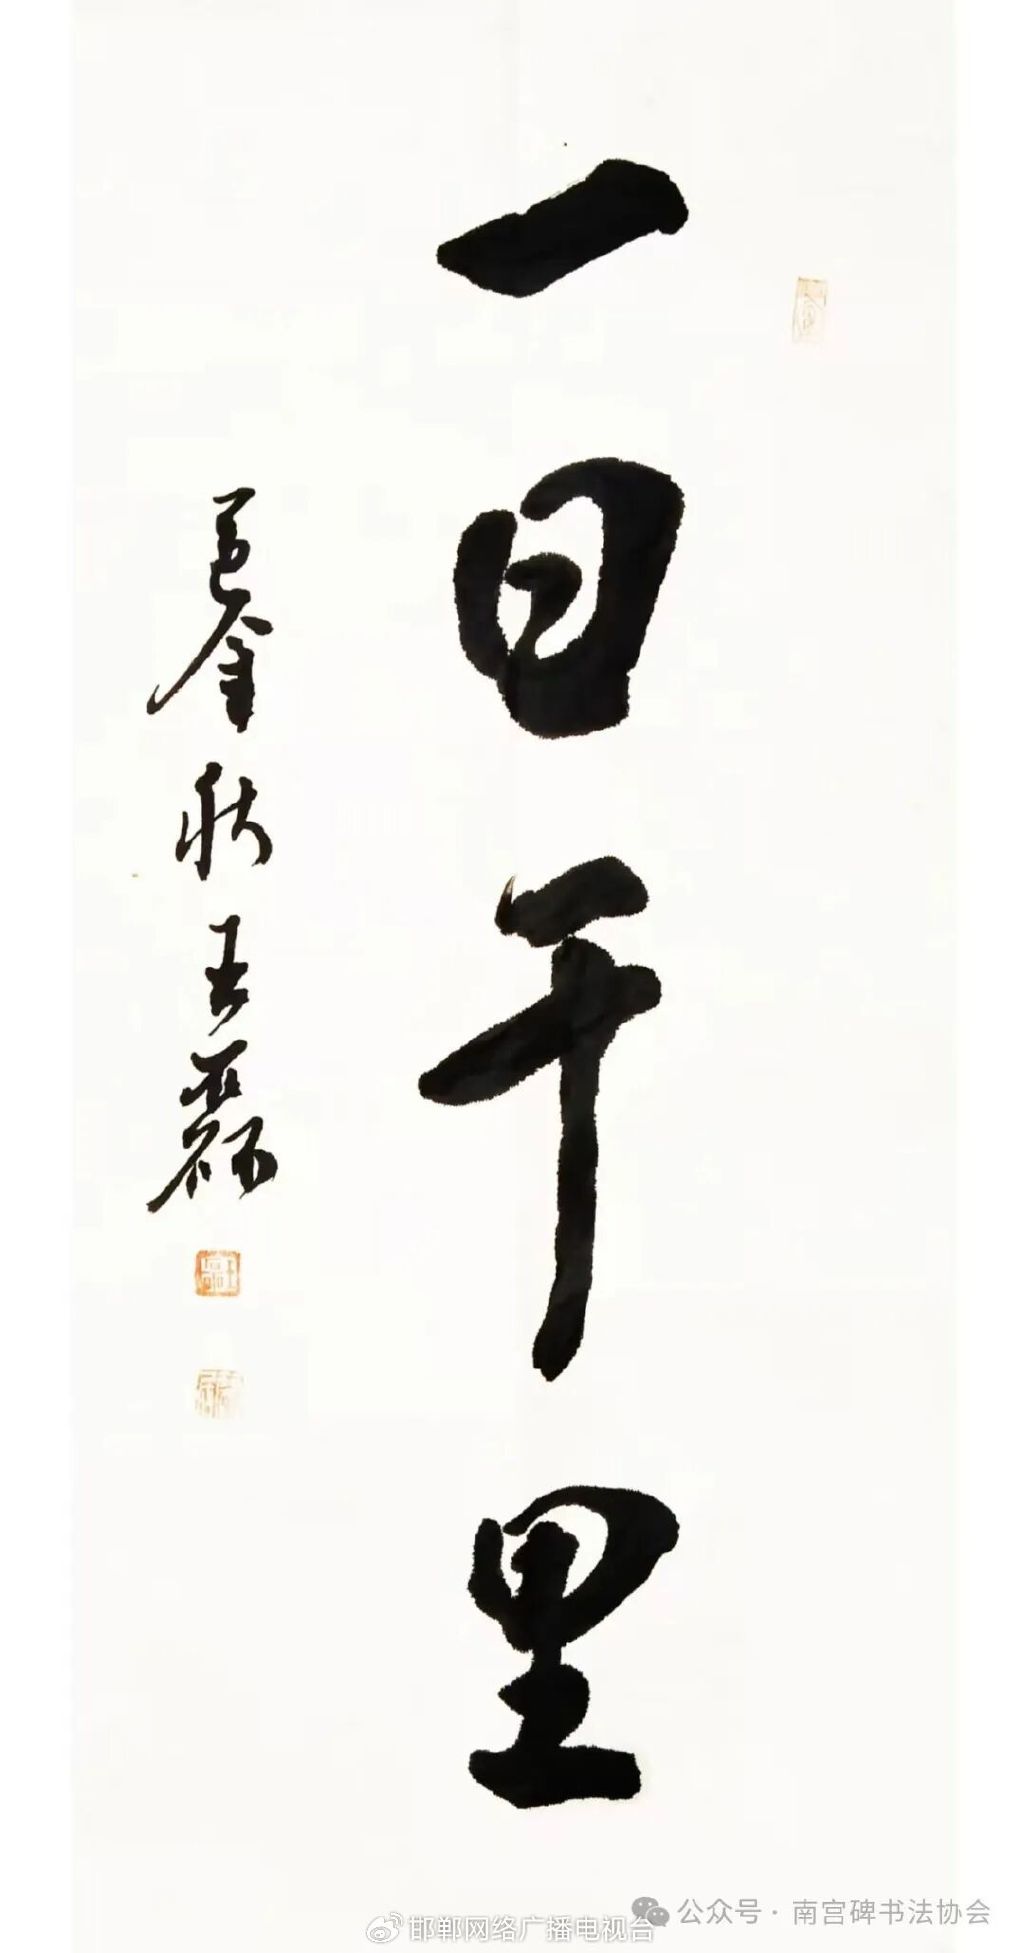 一日千里
秋王磊
公众号·南宫碑书法协会
邯郸网络广播电视台